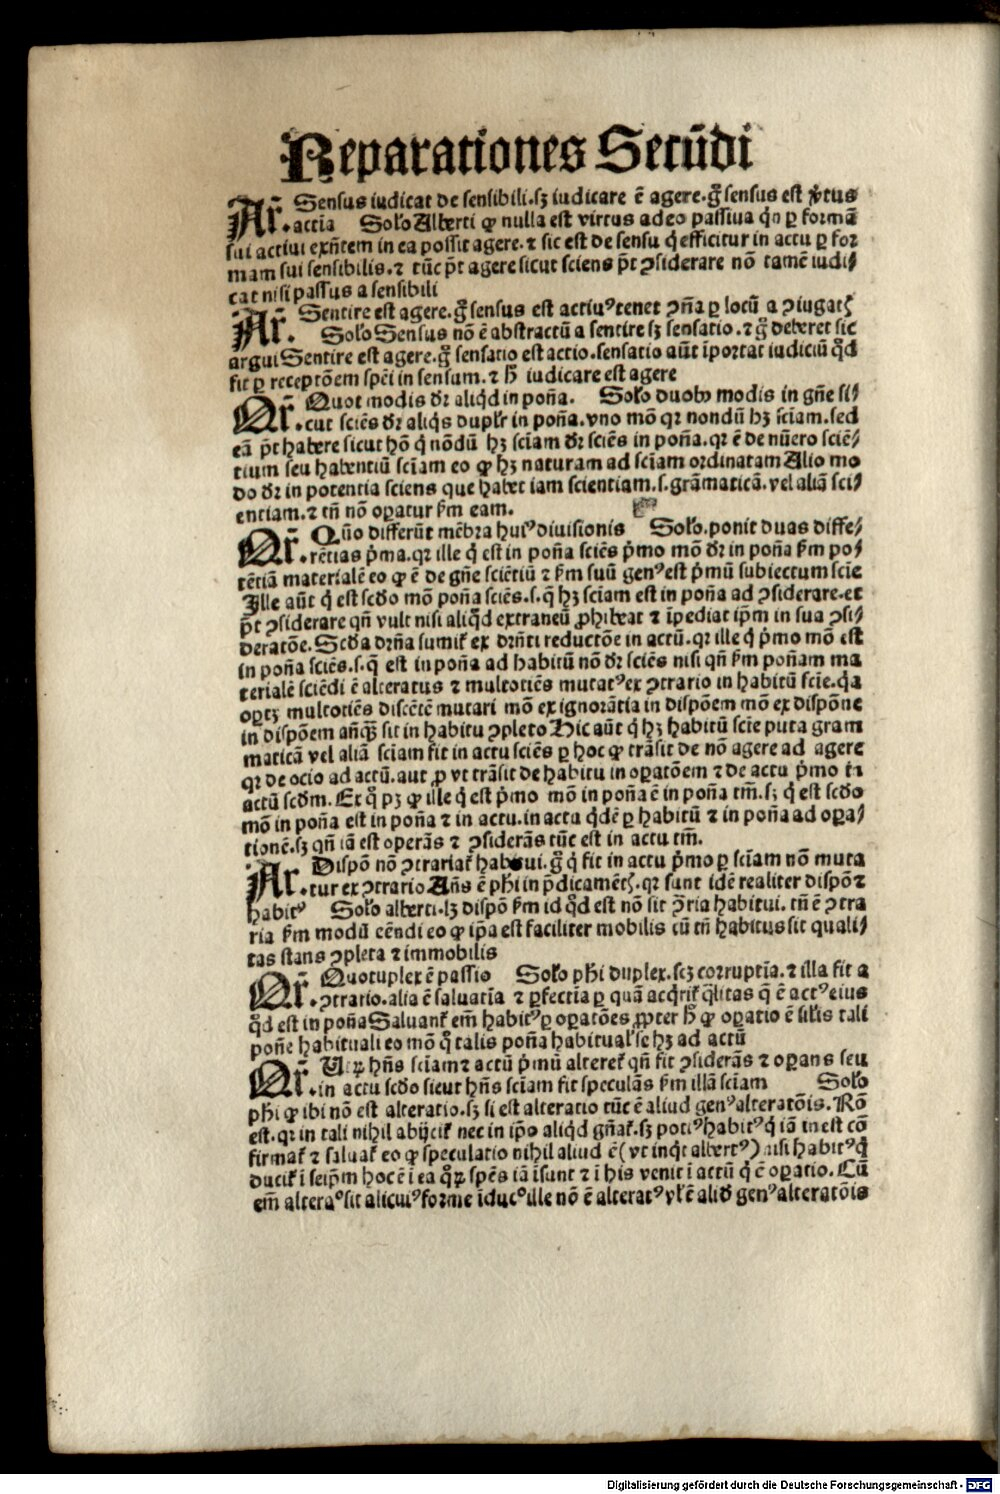 Reparationes Secūdi
Ar̄. Sensus iudicat de sensibili.sꝫ iudicare ē agere.gͦ sensus est v̄tus
actīa Solꝰo Alberti ꝙ nulla est virtus adeo passiua qn̄ ꝑ formā
sui actiui exn̄tem in ea possit agere.⁊ sic est de sensu q̇ efficitur in actu ꝑ for
mam sui sensibilis.⁊ tūc p̄t agere sicut sciens p̄t ꝯsiderare nō tamē iudi⸗
cat nisi passus a sensibili
Ar̄. Sentire est agere.gͦ sensus est actiuꝰ tenet ꝯn̄a ꝑ locū a ꝯiugatꝭ
Solo Sensus nō ē abstractū a sentire sꝫ sensatio.⁊ gͦ deberet sic
argui Sentire est agere.gͦ sensatio est actio.sensatio aūt īportat iudiciū qd̄
fit ꝑ receptōem spēi in sensum.⁊ h̄ iudicare est agere
Qr̄. Quot modis dr̄ aliqd̄ in poñа. Solo duobꝰ modis in gn̄e si⸗
cut sciēs dr̄ aliqs duplr̄ in poñа.vno mō qꝛ nondū hꝫ sciam.sed
eā p̄t habere sicut hō q̇ nōdū hꝫ sciam dr̄ sciēs in poñа.qꝛ ē de nūero sciē⸗
tium seu habentiū sciam eo ꝙ hꝫ naturam ad sciam ordinatam Alio mo
do dr̄ in potentia sciens que habet iam scientiam.s.grāmaticā.vel aliā sci⸗
entiam.⁊ tn̄ nō oꝑatur scd̄m eam.
Qr̄. Quō differūt mēbra huiꝰ diuisionis Solo.ponit duas diffe⸗
rētias p̄ma.qꝛ ille q̇ est in poñа sciēs p̄mo mō dr̄ in poñа scd̄m po⸗
tētiā materialē eo ꝙ ē de gn̄e sciētiū ⁊ scd̄m suū genꝰ est p̄mū subiectum scie
Ille aūt q̇ est scd̄o mō poñа sciēs.s.q̇ hꝫ sciam est in poñа ad ꝯsiderare.et
p̄t ꝯsiderare qn̄ vult nisi aliqd̄ extraneū ꝓhibeat ⁊ īpediat ip̄m in sua ꝯsi⸗
deratōe. Scd̄a drn̄a sumiꝉ ex drn̄ti reductōe in actū.qꝛ ille q̇ p̄mo mō est
in poñа sciēs.s.q̇ est in poñа ad habitū nō dr̄ sciēs nisi qn̄ scd̄m poñаm ma
terialē sciēdi ē alteratus ⁊ multotiēs mutatꝰ ex ꝯtrario in habitū scie.qa
oꝑtꝫ multotiēs discētē mutari mō ex ignorātia in dispōem mō ex dispōne
in dispōem an̄qꝫ sit in habitu ꝯpleto Hic aūt q̇ hꝫ habitū scie puta gram
maticā vel aliā sciam fit in actu sciēs ꝑ hoc ꝙ trāsit de nō agere ad agere
qꝛ de ocio ad actū.aut ꝓ vt trāsit de habitu in oꝑatōem ⁊ de actu p̄mo in
actū scd̄m. Ex q̊ pꝫ ꝙ ille q̇ est p̄mo mō in poñа ē in poñа tm̄.sꝫ q̇ est scd̄o
mō in poñа est in poñа ⁊ in actu.in actu qd̄ē ꝑ habitū ⁊ in poñа ad oꝑa⸗
tionē.sꝫ qn̄ iā est operās ⁊ ꝯsiderās tūc est in actu tm̄.
Ar̄. Dispō nō ꝯtrariaꝉ habitui.gͦ q̇ fit in actu p̄mo ꝑ sciam nō muta
tur ex ꝯtrario Ān̄s ē ph̄i in p̄dicamētꝭ.qꝛ sunt idē realiter dispō ⁊
habitꝰ Solo alberti.lꝫ dispō scd̄m id qd̄ est nō sit ꝯ̄ria habitui. tn̄ ē ꝯtra
ria scd̄m modū eēndi eo ꝙ ip̄a est faciliter mobilis cū tn̄ habitus sit quali⸗
tas stans ꝯpleta ⁊ immobilis
Qr̄. Quotuplex ē passio Solo ph̄i duplex.scꝫ corruptīa.⁊ illa fit a
ꝯtrario.alia ē saluatīa ⁊ ꝑfectīa ꝑ quā acq̇riꝉ q̄litas q̄ ē actꝰ eius
qd̄ est in poñа Saluanꝉ em̄ habitꝰ ꝑ oꝑatōes ꝓpter h̄ ꝙ oꝑatio ē sil̓is tali
poñe habituali eo mō q̊ talis poñа habitual̓ se hꝫ ad actū
Qr̄. Utꝝ hn̄s sciam ⁊ actū p̄mū altereꝉ qn̄ fit ꝯsiderās ⁊ oꝑans seu
in actu scd̄o sicut hn̄s sciam fit speculās scd̄m illā sciam Solo
ph̄i ꝙ ibi nō est alteratio.sꝫ si est alteratio tūc ē aliud genꝰ alteratōis. Rō
est.qꝛ in tali nihil abijciꝉ nec in ip̄o aliqd̄ gn̄aꝉ.sꝫ potiꝰ habitꝰ q̇ iā inest cō
firmaꝉ ⁊ saluaꝉ eo ꝙ speculatio nihil aliud ē (vt inq̇t albertꝰ) nisi habitꝰ q̇
duciꝉ ī seip̄m hoc ē ī ea qꝝ spēs iā īsunt ⁊ ī his venit ī actū q̇ ē oꝑatio. Cū
em̄ alteraꝰ sit alicuiꝰ forme īducꝰ ille nō ē alteratꝰ vl̓ ē aliđ genꝰ alteratōis
Digitalisierung gefördert durch die Deutsche Forschungsgemeinschaft - DFG